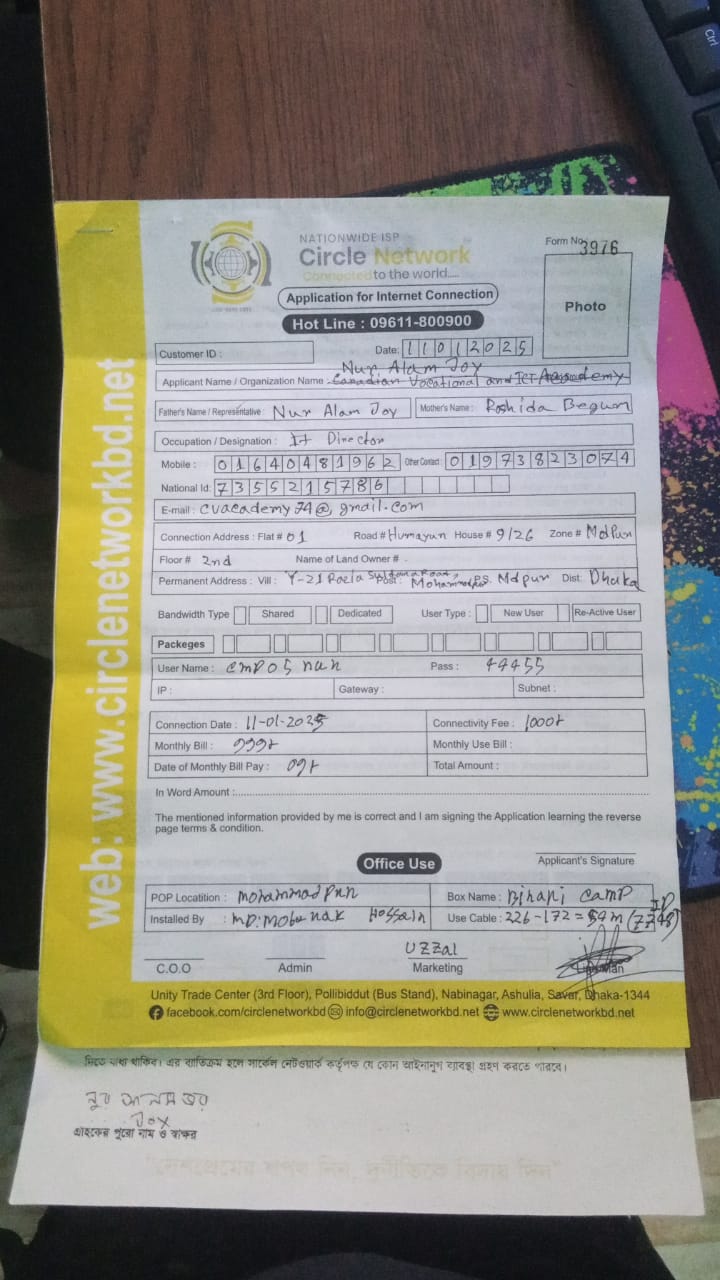 NATIONWIDE ISP
Circle Network
Connected to the world....
Form No 3976
Application for Internet Connection
Photo
Hot Line : 09611-800900
Customer ID :
Date: 11012025
Nur Alam Joy
Applicant Name / Organization Name : Canadian Vocational and ICT Academy
Father's Name / Representative : Nur Alam Joy Mother's Name : Roshida Begum
Occupation / Designation : It Director
Mobile : 01640481962 Other Contact 01973823074
National Id: 7355215786
E-mail : cvacademy74@gmail.com
Connection Address : Flat # 01 Road # Humayun House # 9/26 Zone # Mdpur
Floor # 2nd Name of Land Owner #
Permanent Address : Vill : Y-21 Post : Mohammadpur P.S. Mdpur Dist: Dhaka
Bandwidth Type Shared Dedicated User Type : New User Re-Active User
Packeges
User Name : cmp05 nun Pass : 44455
IP : Gateway : Subnet :
Connection Date : 11-01-2025 Connectivity Fee : 1000৳
Monthly Bill : 999৳ Monthly Use Bill :
Date of Monthly Bill Pay : 09৳ Total Amount :
In Word Amount :
The mentioned information provided by me is correct and I am signing the Application learning the reverse
page terms & condition.
Office Use
Applicant's Signature
POP Locatition : Mohammadpur Box Name : Bihari camp
Installed By : MD: Hossain Use Cable : 226-172 = 54m
C.O.O Admin UZZal
Marketing
Unity Trade Center (3rd Floor), Pollibiddut (Bus Stand), Nabinagar, Ashulia, Savar, Dhaka-1344
facebook.com/circlenetworkbd info@circlenetworkbd.net www.circlenetworkbd.net
web: www.circlenetworkbd.net
দিতে বাধ্য থাকিব। এর ব্যতিক্রম হলে সার্কেল নেটওয়ার্ক কর্তৃপক্ষ যে কোন আইনানুগ ব্যবস্থা গ্রহণ করতে পারবে।
নুর আলম জয়
Joy
গ্রাহকের পুরো নাম ও স্বাক্ষর
"দেশপ্রেমের শপথ নিন, দুর্নীতিকে বিদায় দিন"
Ctrl